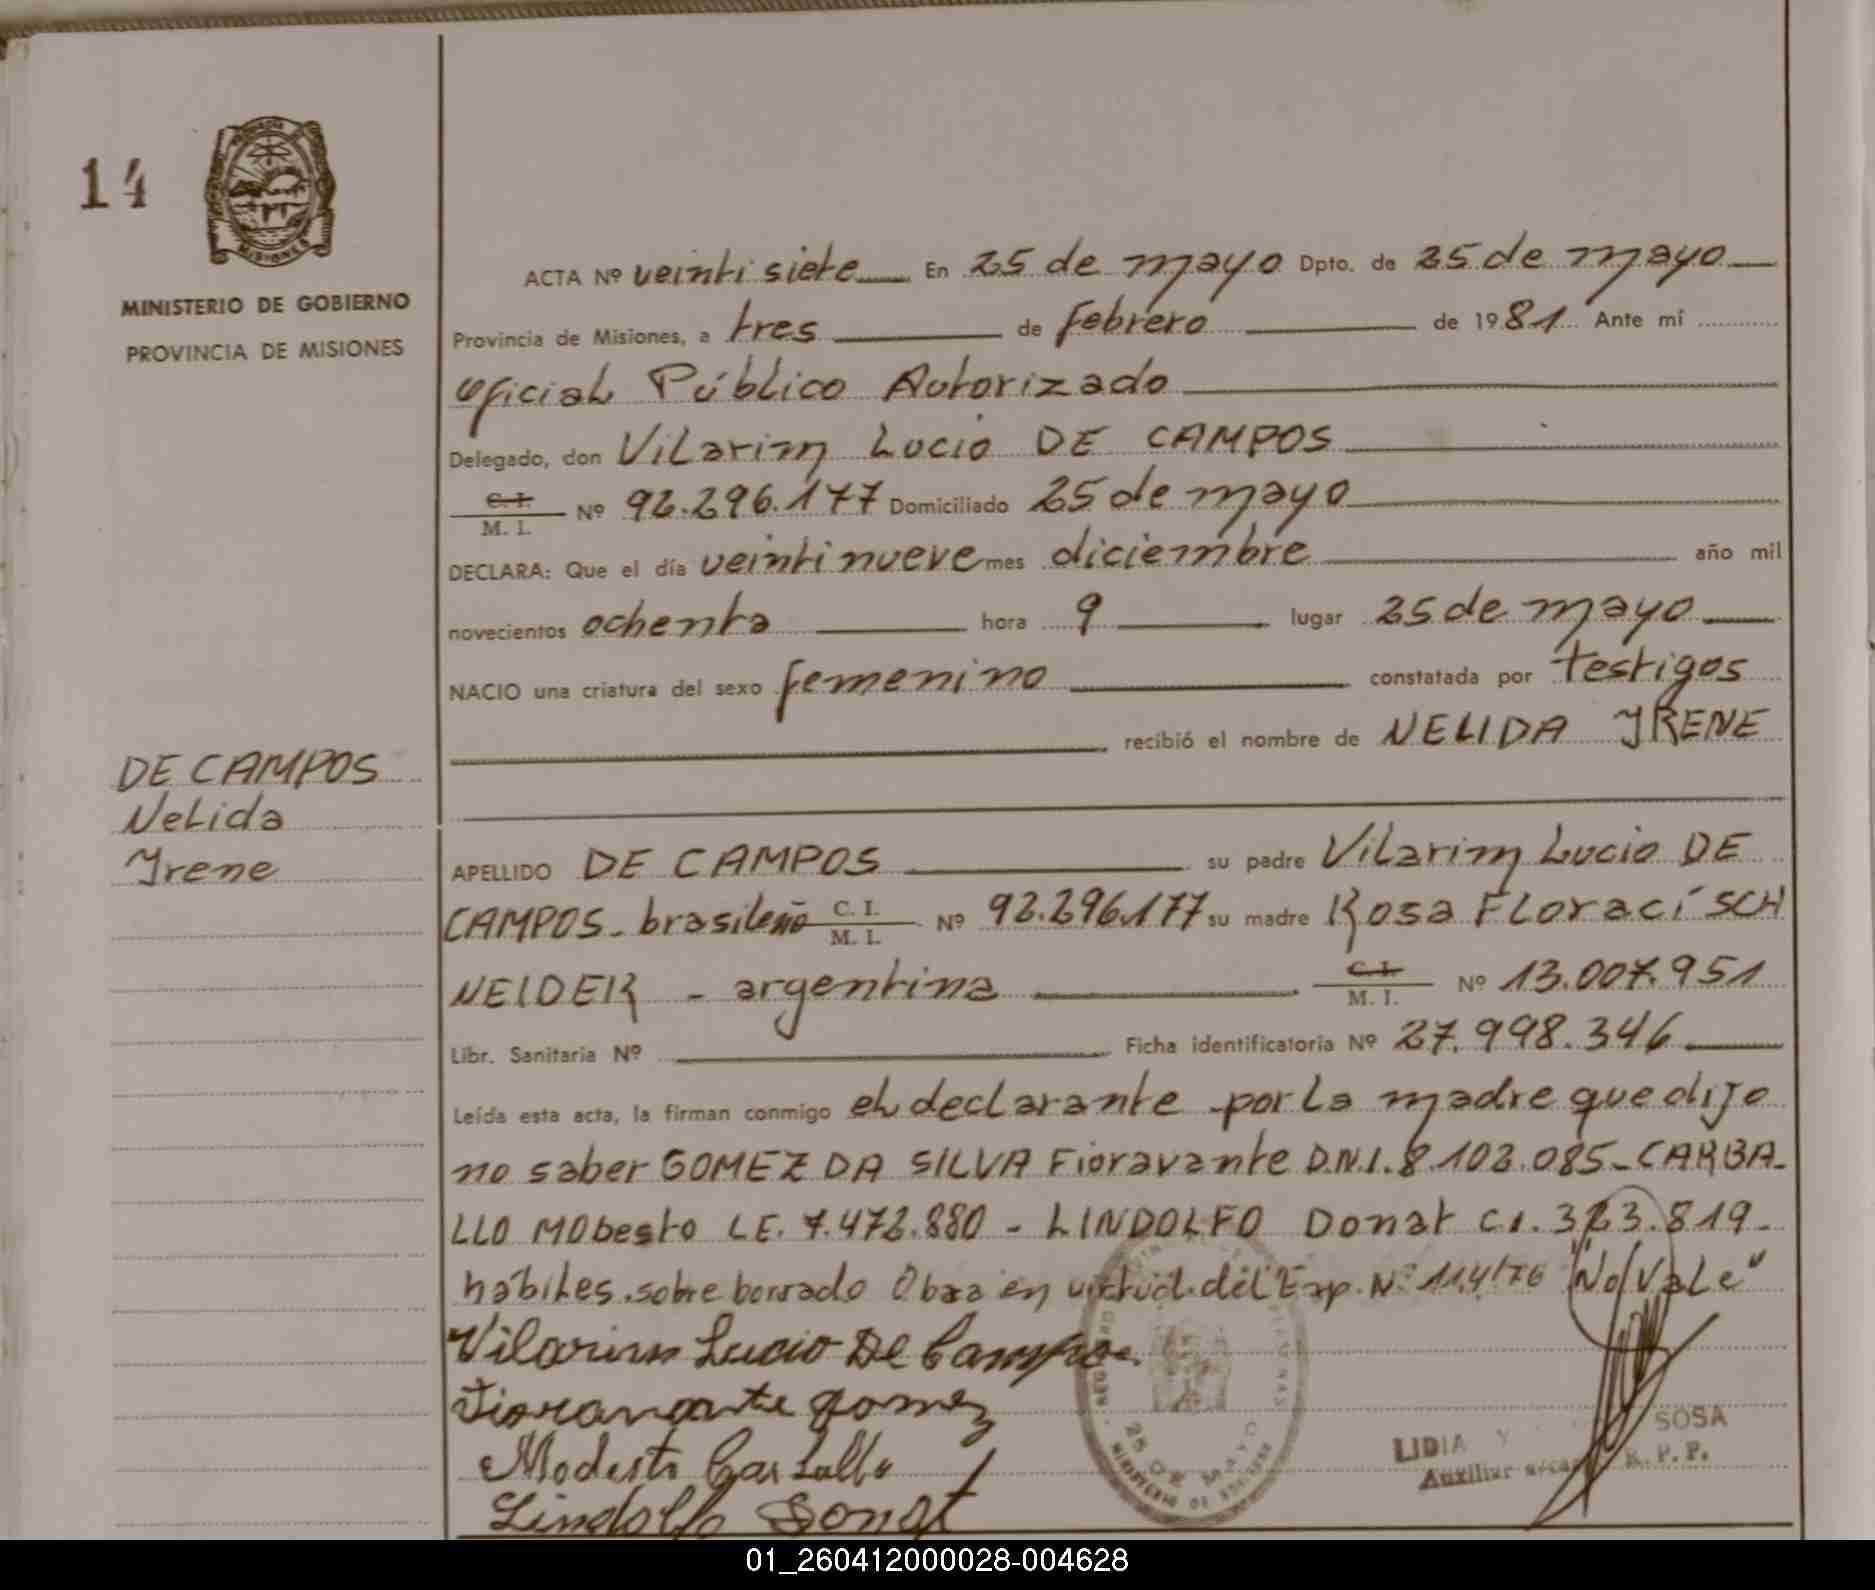 14
MISIONES
MINISTERIO DE GOBIERNO
PROVINCIA DE MISIONES
ACTA Nº veintisiete En 25 de mayo Dpto. de 25 de mayo
Provincia de Misiones, a tres de febrero de 1981 Ante mí
Oficial Público Autorizado
Delegado, don Vilarim Lucio DE CAMPOS
C.I. / M. I. Nº 92.296.177 Domiciliado 25 de mayo
DECLARA: Que el día veintinueve mes diciembre año mil
novecientos ochenta hora 9 lugar 25 de mayo
NACIO una criatura del sexo femenino constatada por testigos
recibió el nombre de NELIDA YRENE
DE CAMPOS
Nelida
Yrene
APELLIDO DE CAMPOS su padre Vilarim Lucio DE
CAMPOS - brasileño C. I. / M. I. Nº 92.296.177 su madre Rosa Florací SCH
NEIDER - argentina C.I. / M. I. Nº 13.007.951
Libr. Sanitaria Nº Ficha identificatoria Nº 27.998.346
Leída esta acta, la firman conmigo el declarante por la madre que dijo
no saber GOMEZ DA SILVA Fioravante D.N.I. 8.102.085 - CARBA-
LLO Modesto LE. 7.472.880 - LINDOLFO Donat C.I. 323.819-
habiles. sobre borrado Obra en virtud del Exp. Nº 114/76 "No Vale"
Vilarim Lucio De Campos
Fioravante Gomez
Modesto Carballo
Lindolfo Donat
25 DE MAYO
LIDIA SOSA
Auxiliar R. P. P.
01_260412000028-004628